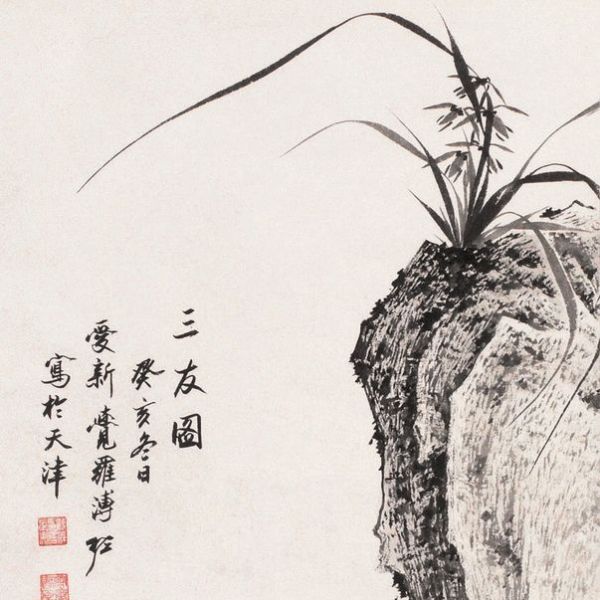 三友圖
癸亥冬日
愛新覺羅溥佐
寫於天津